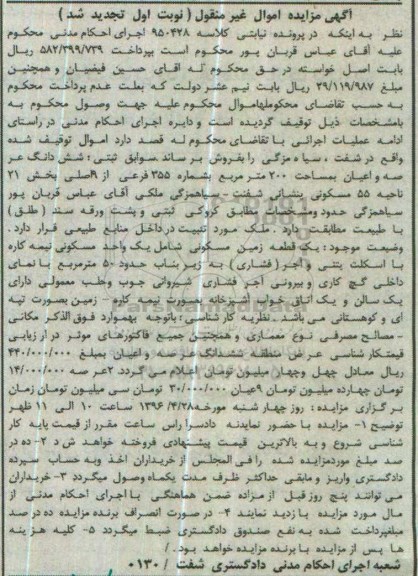 آگهی مزایده اموال غیر منقول ( نوبت اول تجدید شد )
نظر به اینکه در پرونده نیابتی کلاسه ۹۵۰۴۲۸ اجرای احکام مدنی محکوم
علیه آقای عباس قربان پور محکوم است بپرداخت ۵۸۲/۳۹۹/۷۳۹ ریال
بابت اصل خواسته در حق محکوم له آقای حسین فیضیان و همچنین
مبلغ ۲۹/۱۱۹/۹۸۷ ریال بابت نیم عشر دولت که بعلت عدم پرداخت محکوم
به حسب تقاضای محکوملهاموال محکوم علیه جهت وصول محکوم به
بامشخصات ذیل توقیف گردیده است و دایره اجرای احکام مدنی در راستای
ادامه عملیات اجرائی با تقاضای محکوم له قصد دارد اموال توقیف شده
واقع در شفت ، سیاه مزگی را بفروش بر ساند سوابق ثبتی : شش دانگ عر
صه و اعیان بمساحت ۲۰۰ متر مربع بشماره ۳۵۵ فرعی از ۹اصلی بخش ۲۱
ناحیه ۵۵ مسکونی بنشانی شفت - سیاهمزگی ملکی آقای عباس قربان پور
سیاهمزگی حدود ومشخصات مطابق کروکی ثبتی و پشت ورقه سند ( طلق )
با طبیعت مطابقت دارد . ملک مورد تثبیت در داخل منابع طبیعی قرار دارد.
وضعیت موجود : یک قطعه زمین مسکونی شامل یک واحد مسکونی نیمه کاره
با اسکلت بتنی و آجر ( فشاری ) به زیر بناب حدود ۵۰ مترمربع با نمای
داخلی گچ کاری و بیرونی آجر فشاری شیروانی چوب وحلب معمولی دارای
یک سالن و یک اتاق خواب آشپزخانه بصورت نیمه کاره زمین بصورت تپه
ای و کوهستانی می باشد . نظریه کار شناسی : باتوجه بهموارد فوق الذکر مکانی
- مصالح مصرفی نوع معماری و همچنین جمیع فاکتورهای موثر در ارزیابی
قیمتکار شناسی عرض منطقه ششدانگ عرصه و اعیان بمبلغ ۴۴۰/۰۰۰/۰۰۰
ریال معادل چهل وچهار میلیون تومان اعلام می گردد. ۲عر صه ۱۴/۰۰۰/۰۰۰
تومان چهارده میلیون تومان ۹عیان ۳۰/۰۰۰/۰۰۰ تومان سی میلیون تومان زمان
بر گزاری مزایده : روز چهار شنبه مورخه۱۳۹۶/۴/۲۸ ساعت ۱۰ الی ۱۱ ظهر
توضیح ۱- مزایده با حضور نماینده دادسرا راس ساعت مقرر از قیمت پایه کار
شناسی شروع و به بالاترین قیمت پیشنهادی فروخته خواهد ش د ۲- ده در
صد مبلغ موردمزایده شده را فی المجلس از خریداران اخذ وبه حساب سپرده
دادگستری واریز و مابقی حداکثر ظرف مدت یکماه وصول میگردد ۳- خریداران
می توانند پنج روز قبل از مزاده ضمن هماهنگی با اجرای احکام مدنی از
مال مورد مزایده با زدید نمایند ۴- در صورت انصراف برنده مزایده ده در صد
مبلغپرداخت شده به نفع صندوق دادگستری ضبط میگردد ۵- کلیه هزینه
ها پس از مزایده با برنده مزایده خواهد بود. /
شعبه اجرای احکام مدنی دادگستری شفت / ۰۱۳۰